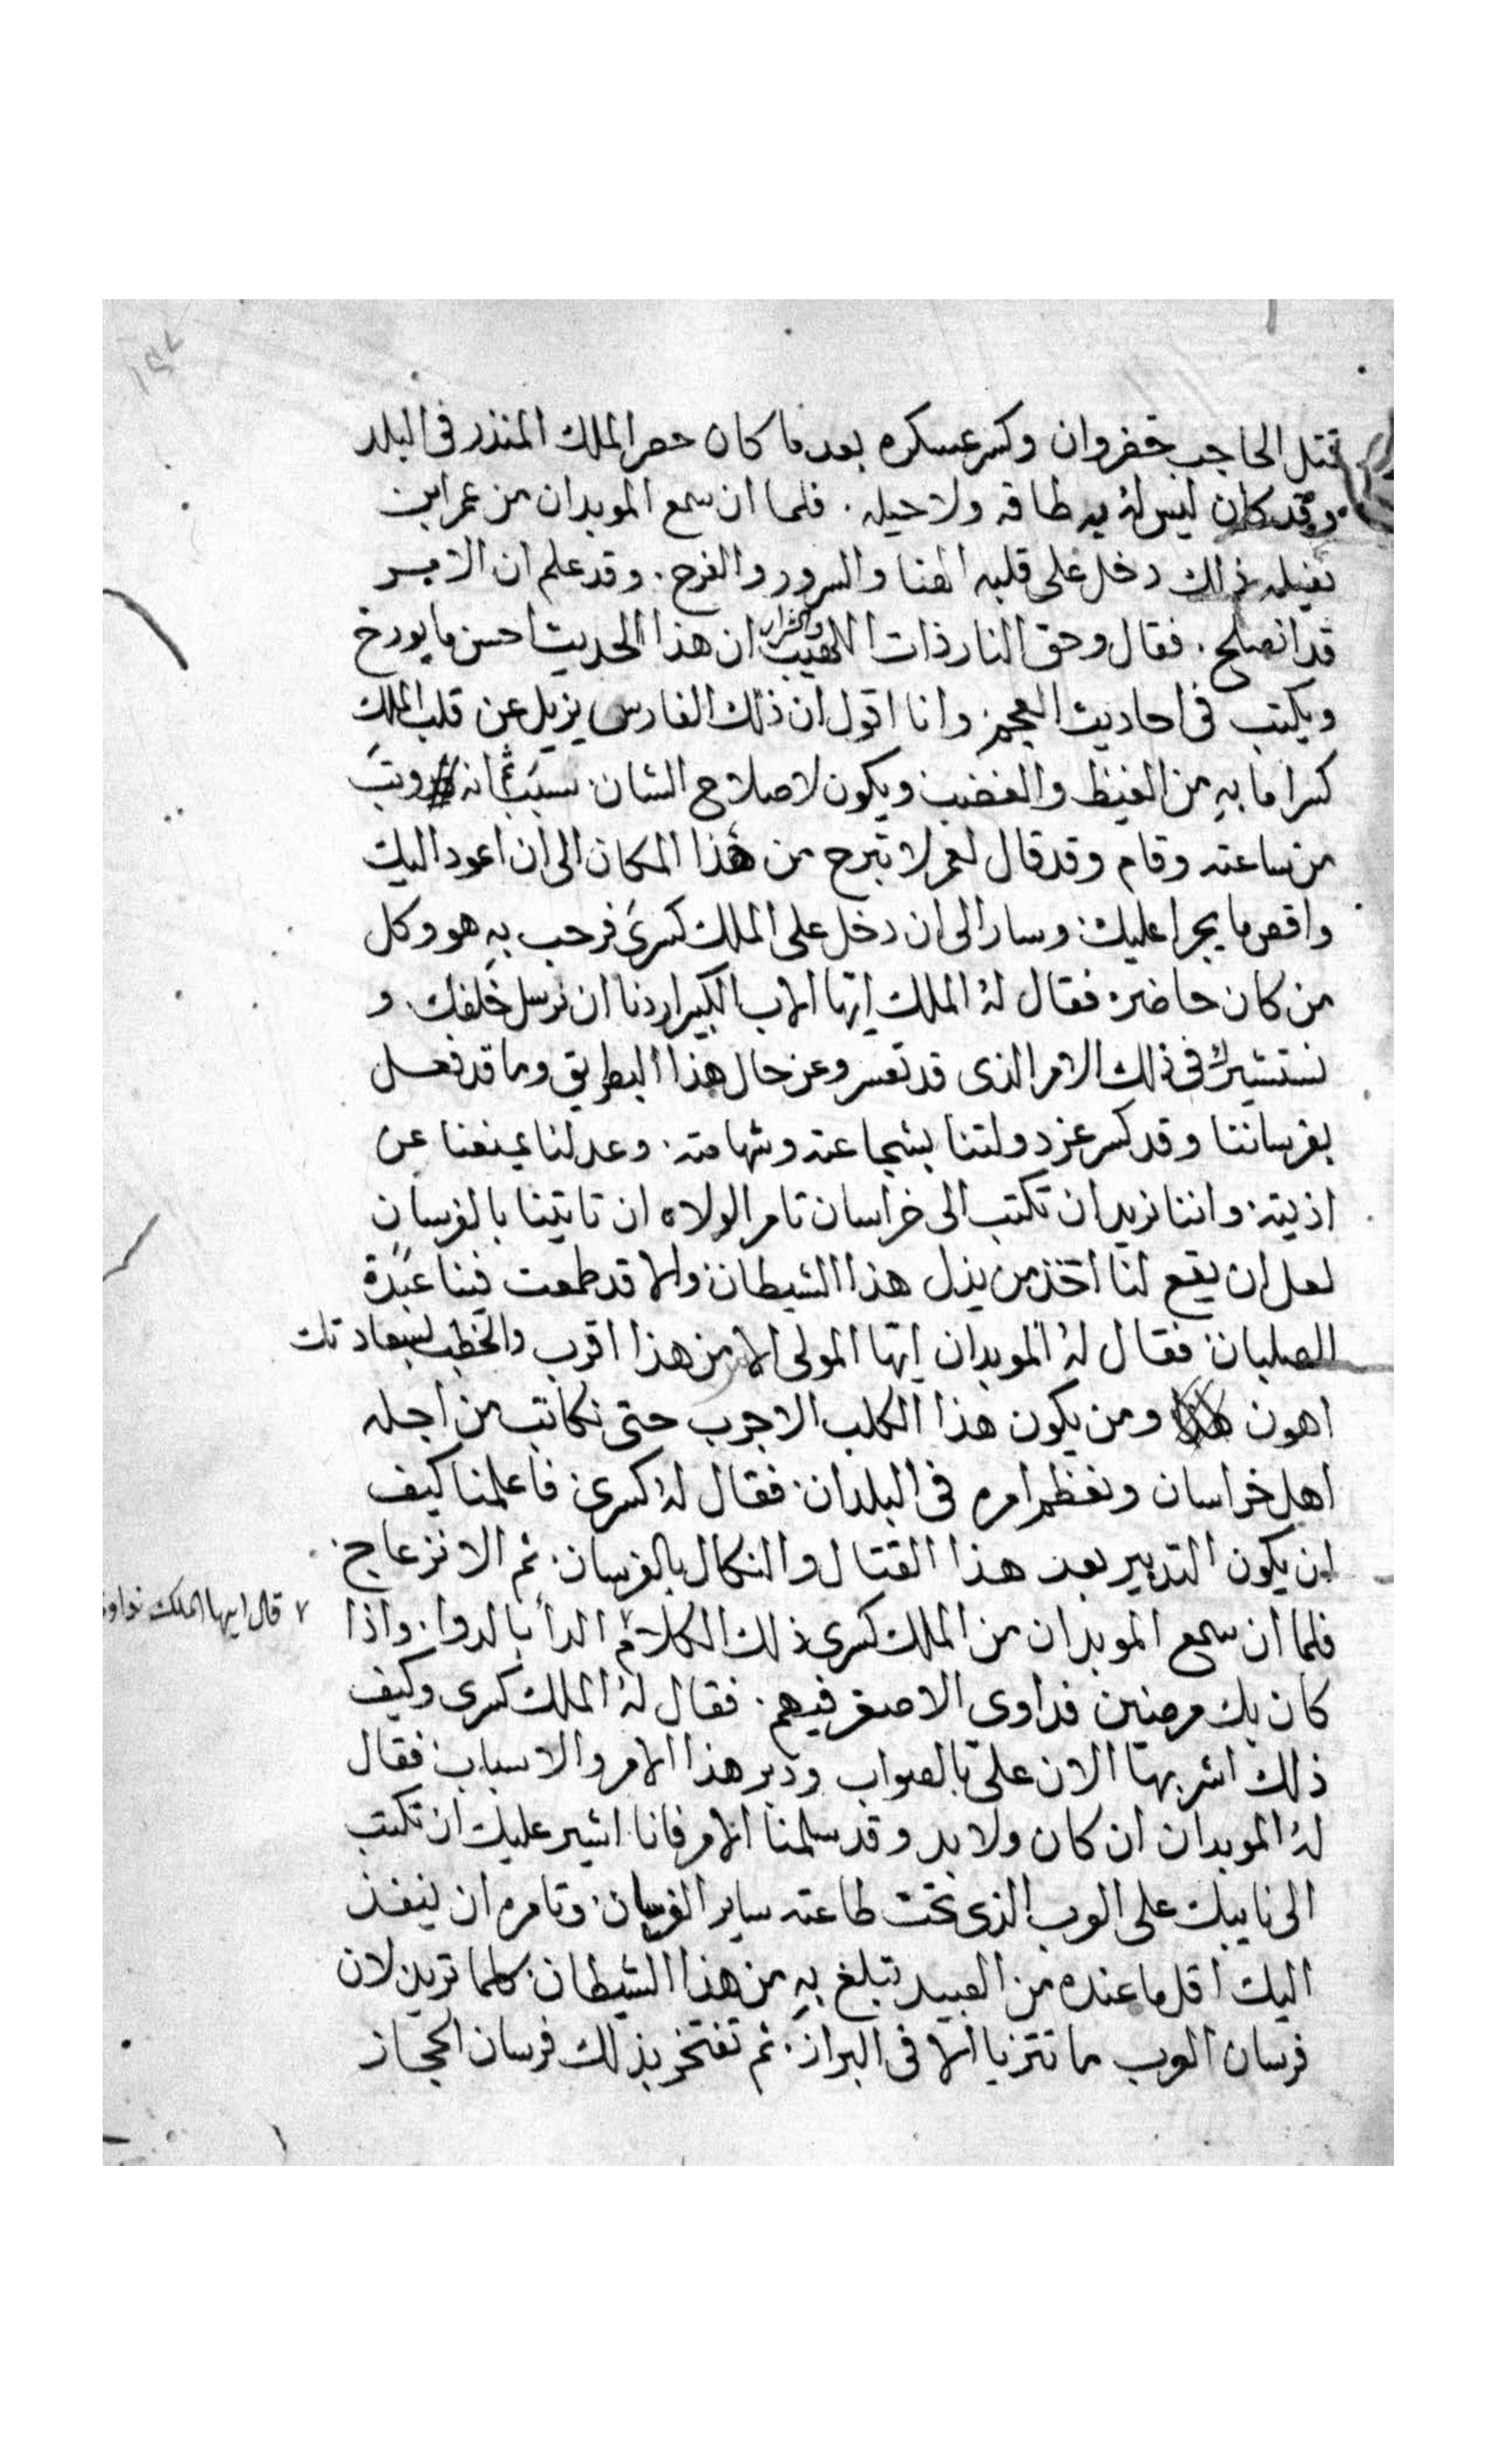 قتل الحاجب خضروان وكسر عسكره بعد ما كان حصر الملك المنذر فى البلد
وقد كان ليس له به طاقه ولا حيله . فلما ان سمع الموبدان من عمر ابن
نفيله ذلك دخل على قلبه الهنا والسرور والفرح . وقد علم ان الامر
قد انصلح . فقال وحق النار ذات اللهيب والشرار ان هذا الحديث احسن ما يورخ
ويكتب فى احاديث العجم . وانا اقول ان ذلك الفارس يزيل عن قلب الملك
كسرا ما به من الغيظ والغضب ويكون لاصلاح الشان سبب ثم انه وثب
من ساعته وقام وقد قال لعمر لا تبرح من هذا المكان الى ان اعود اليك
واقص ما يجرا عليك وسار الى ان دخل على الملك كسرى فرحب به هو وكل
من كان حاضره فقال له الملك ايها الاب الكبير اردنا ان نرسل خلفك . و
نستشيرك فى ذلك الامر الذى قد تعسر وعن حال هذا البطريق وما قد فعل
بفرساننا وقد كسر عز دولتنا بشجاعته وشهامته . وعدلنا يمنعنا عن
اذيته . واننا نريد ان تكتب الى خراسان تامر الولاه ان تاتينا بالفرسان
لعل ان يقع لنا احد من يذل هذا الشيطان والا قد طمعت فينا عبدة
الصلبان فقال له الموبدان ايها المولى الامر من هذا اقرب والخطب لسعادتك
اهون ومن يكون هذا الكلب الاجرب حتى نكاتب من اجله
اهل خراسان ونعظم امره فى البلدان . فقال له كسرى فاعلمنا كيف
ان يكون التدبير بعد هذا القتال والنكال بالفرسان . ثم الانزعاج .
فلما ان سمع الموبدان من الملك كسرى ذلك الكلام ٧ الدأ بالدوا . واذا
٧ قال ايها الملك نداوى
كان بك مرضين فداوى الاصغر فيهم . فقال له الملك كسرى وكيف
ذلك اشر بهنا الان على بالصواب ودبر هذا الامر والاسباب . فقال
له الموبدان ان كان ولا بد وقد سلمنا الامر فانا اشير عليك ان تكتب
الى نايبك على العرب الذى تحت طاعته ساير الفرسان . وتامره ان ينفذ
اليك اقل ما عنده من العبيد تبلغ به من هذا الشيطان كلما تريد لان
فرسان العرب ما تتزيا الا فى البراز . ثم تفتخر بذلك فرسان الحجاز